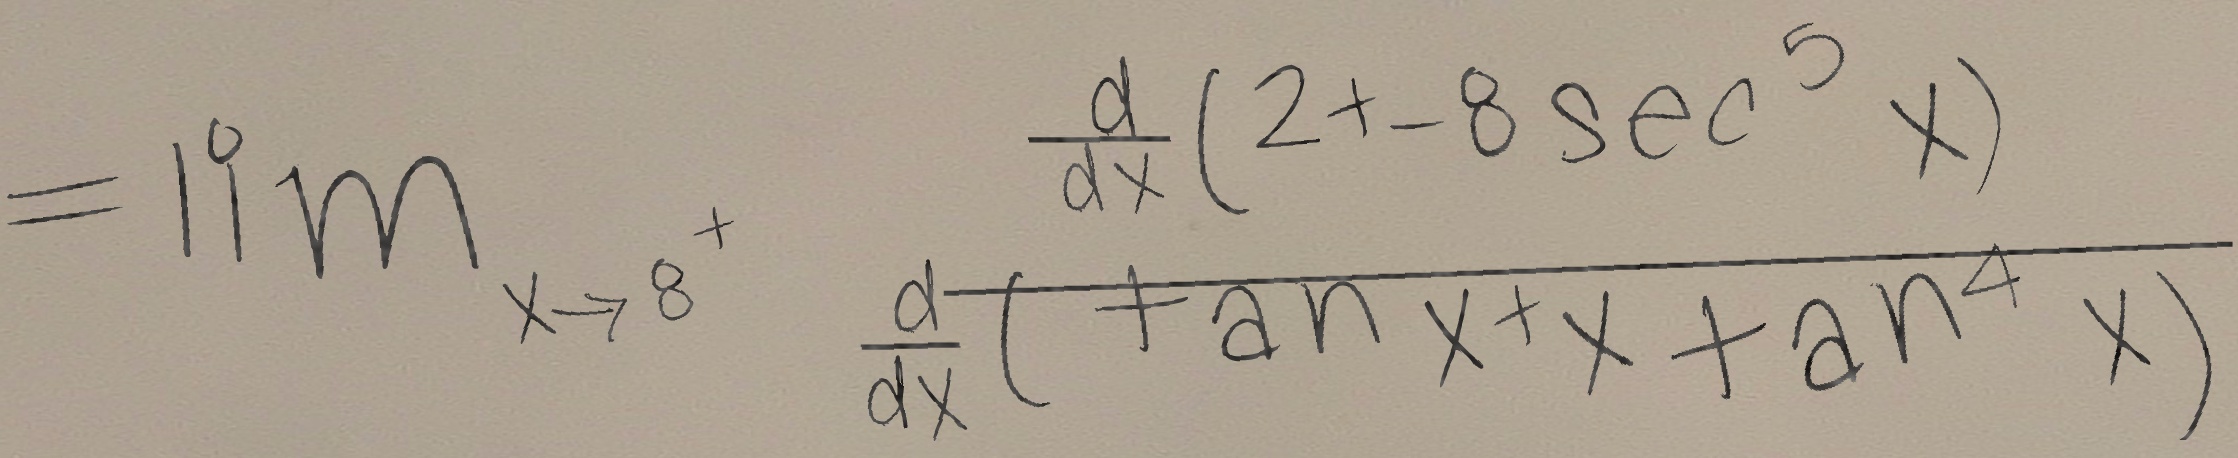 = \lim_{x \to 8^+} \frac{\frac{d}{dx}(2 + -8 \sec^5 x)}{\frac{d}{dx}(\tan x + x \tan^4 x)}